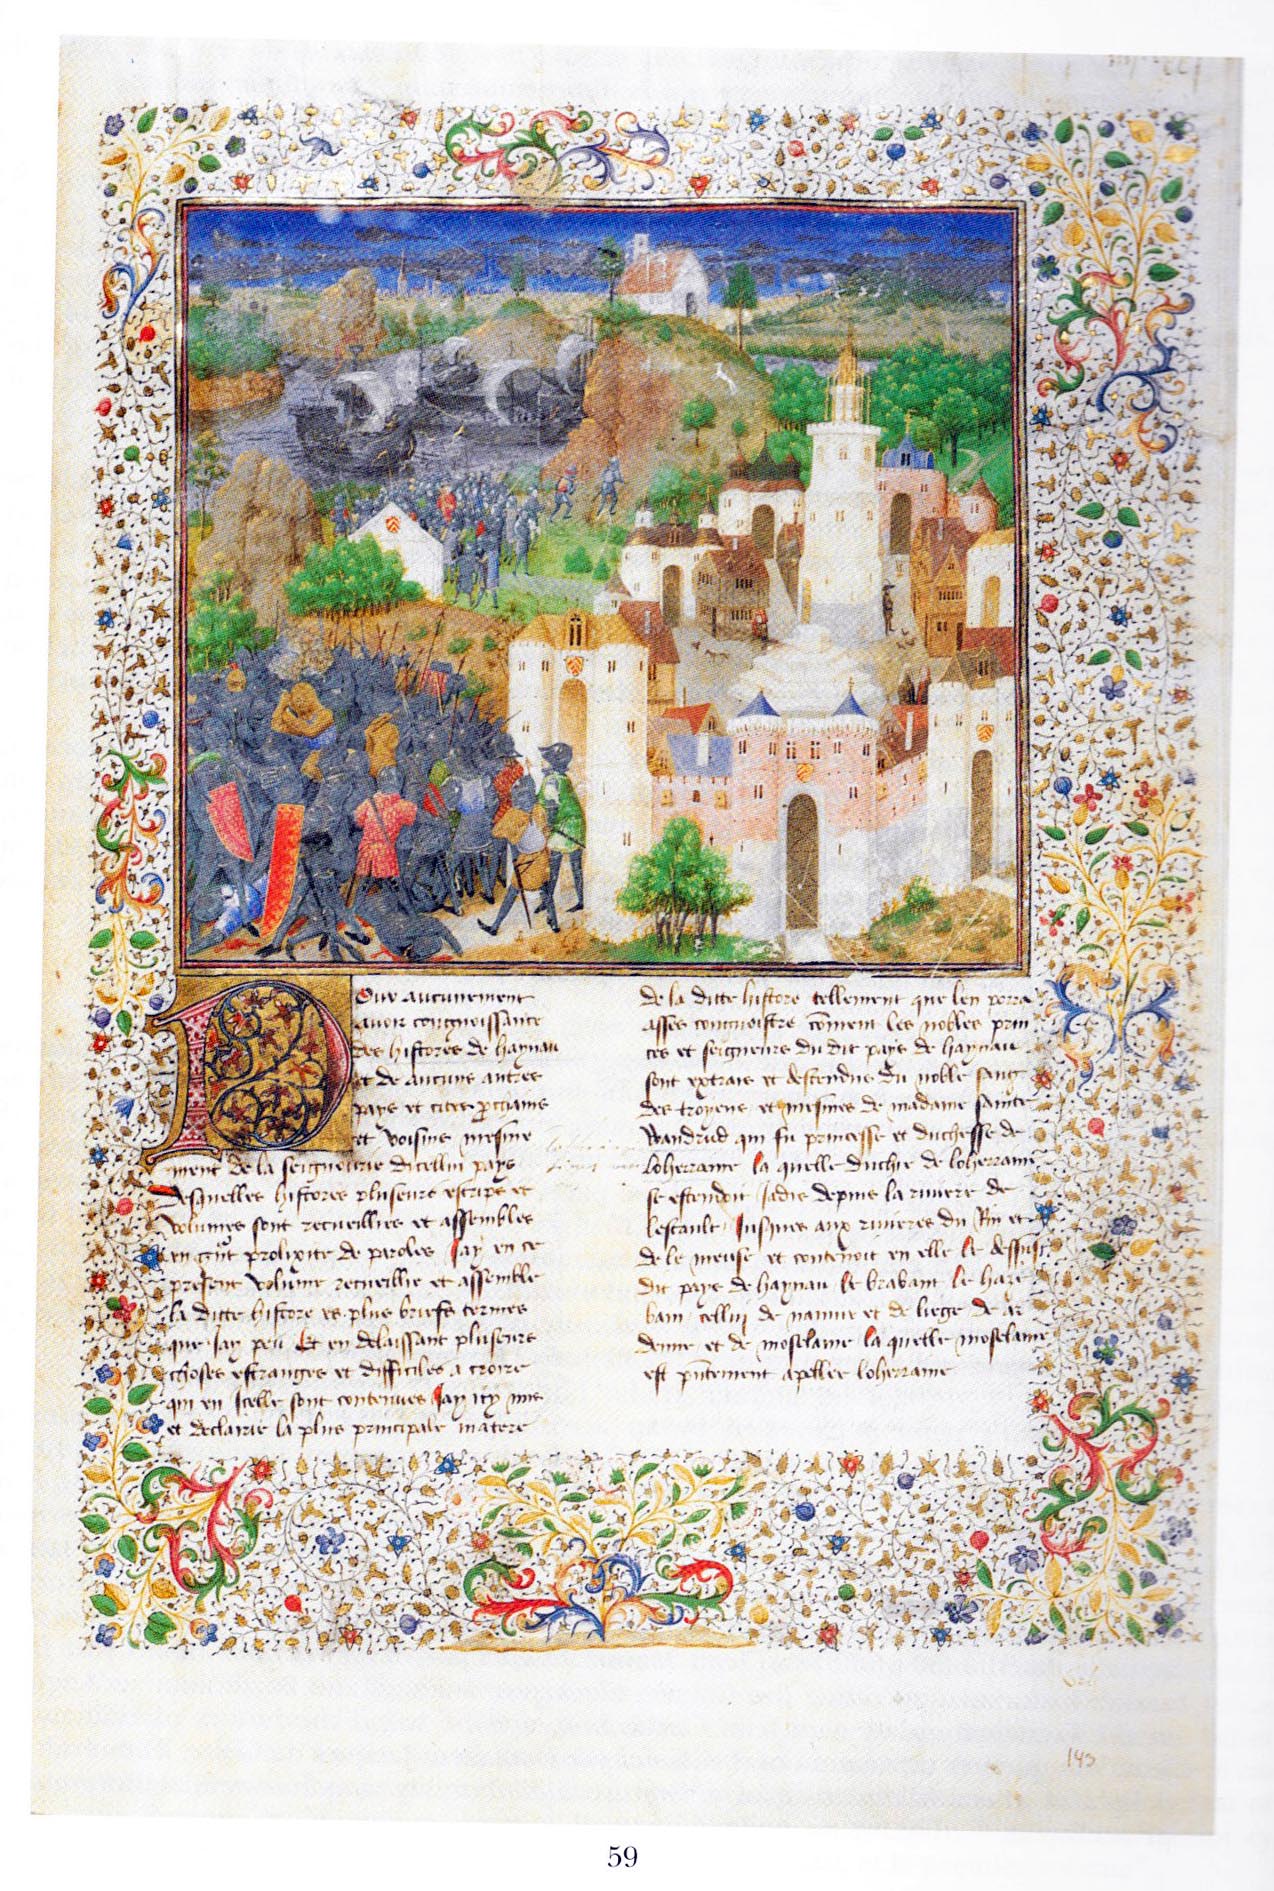 Pour aucunement
auoir congnoissance
des histores de haynau
et de aucuns autres
pays et citez prochains
et voisins mesme
ment de la seignourie dicellui pays
Desquelles histores pluseurs escrips et
volumes sont recueillies et assembles
en grant prolixite de paroles Jay en ce
present volume recueillie et assemble
la ditte histore es plus briefs termes
que Jay peu Et en delaissant pluseurs
choses estranges et difficiles a croire
qui en Icelle sont contenues Jay icy mis
et declairie la plus principale matere
de la ditte histore tellement que len porra
asses congnoistre coment les nobles prin
ces et seigneurs du dit pays de haynau
sont extrais et descendus du noble sang
des troyens et mesmes de madame sainte
Wandrud qui fu princesse et duchesse de
loherraine la quelle duchie de loherraine
se estendoit Jadis depuis la riuiere de
lescault Jusques aux riuieres du Rin et
de le meuse et contenoit en elle le dessus
dit pays de haynau le brabant le has
bain cellui de namur et de liege De ar
denne et de moselaine la quelle moselaine
est pntement apellee loherraine
143
59